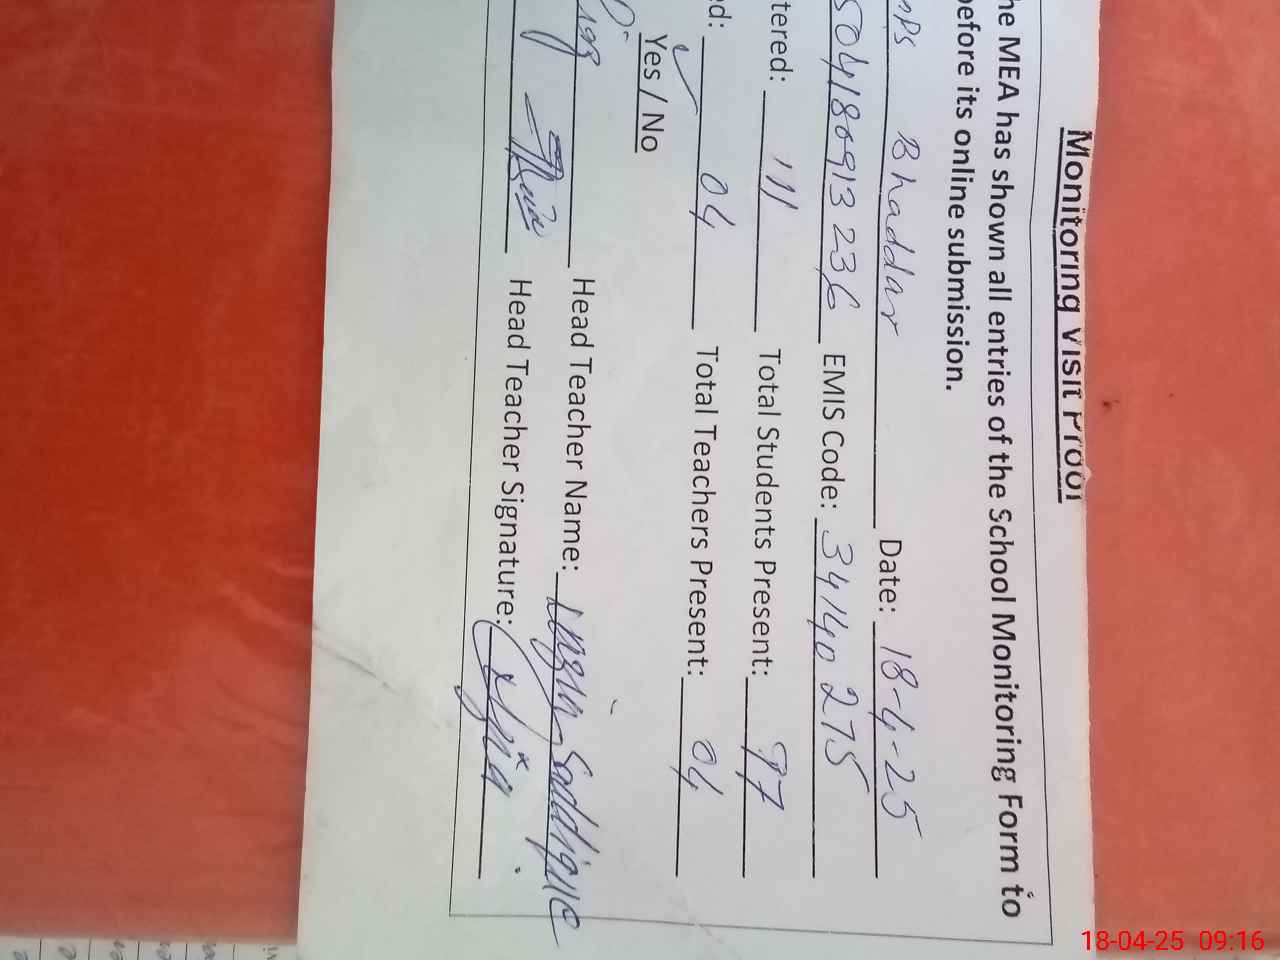 Monitoring Visit Proof
he MEA has shown all entries of the School Monitoring Form to
before its online submission.
mps Bhaddar Date: 18-4-25
50418091 3 236 EMIS Code: 34140 275
tered: 111 Total Students Present: 97
ed: 04 Total Teachers Present: 04
Yes / No
Head Teacher Name: Saddique
Head Teacher Signature:
18-04-25 09:16